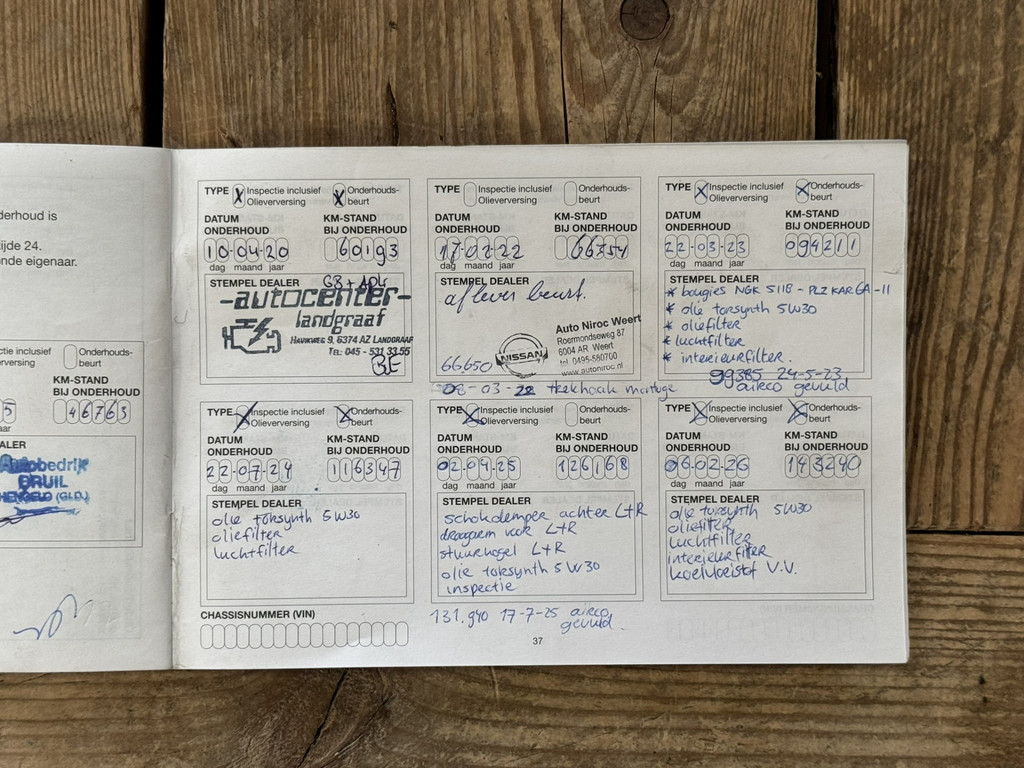 derhoud is
tijde 24.
nde eigenaar.
ctie inclusief
Onderhouds-
beurt
verversing
KM-STAND
BIJ ONDERHOUD
5
46763
aar
ALER
Autobedrijf
BRUIL
HENGELO (GLD.)
TYPE X Inspectie inclusief
Olieverversing
X Onderhouds-
beurt
DATUM
ONDERHOUD
KM-STAND
BIJ ONDERHOUD
10-04-20
60193
dag maand jaar
STEMPEL DEALER
-autocenter-
landgraaf
HAVIKWEG 9, 6374 AZ LANDGRAAF
TEL: 045 - 531 33 55
TYPE Inspectie inclusief
Olieverversing
Onderhouds-
beurt
DATUM
ONDERHOUD
KM-STAND
BIJ ONDERHOUD
17-02-22
66754
dag maand jaar
STEMPEL DEALER
aflever beurt.
66650
NISSAN
Auto Niroc Weert
Roermondseweg 87
6004 AR Weert
tel. 0495-580700
www.autoniroc.nl
08-03-22 trekhaak montage
TYPE X Inspectie inclusief
Olieverversing
X Onderhouds-
beurt
DATUM
ONDERHOUD
KM-STAND
BIJ ONDERHOUD
22-03-23
094211
dag maand jaar
STEMPEL DEALER
* bougies NGK 5118 - PLZKAR6A-11
* olie torsynth 5W30
* oliefilter
* luchtfilter
* interieurfilter.
99385 24-5-23
airco gevuld
TYPE X Inspectie inclusief
Olieverversing
X Onderhouds-
beurt
DATUM
ONDERHOUD
KM-STAND
BIJ ONDERHOUD
22-07-24
116347
dag maand jaar
STEMPEL DEALER
olie torsynth 5W30
oliefilter
luchtfilter
TYPE X Inspectie inclusief
Olieverversing
Onderhouds-
beurt
DATUM
ONDERHOUD
KM-STAND
BIJ ONDERHOUD
02-04-25
126168
dag maand jaar
STEMPEL DEALER
schokdemper achter L+R
draagarm voor L+R
stuurkogel L+R
olie torsynth 5W30
inspectie
131.940 17-7-25 airco
gevuld.
TYPE X Inspectie inclusief
Olieverversing
X Onderhouds-
beurt
DATUM
ONDERHOUD
KM-STAND
BIJ ONDERHOUD
06-02-26
143240
dag maand jaar
STEMPEL DEALER
olie torsynth 5W30
oliefilter
luchtfilter
interieurfilter
koelvloeistof V.V.
CHASSISNUMMER (VIN)
37